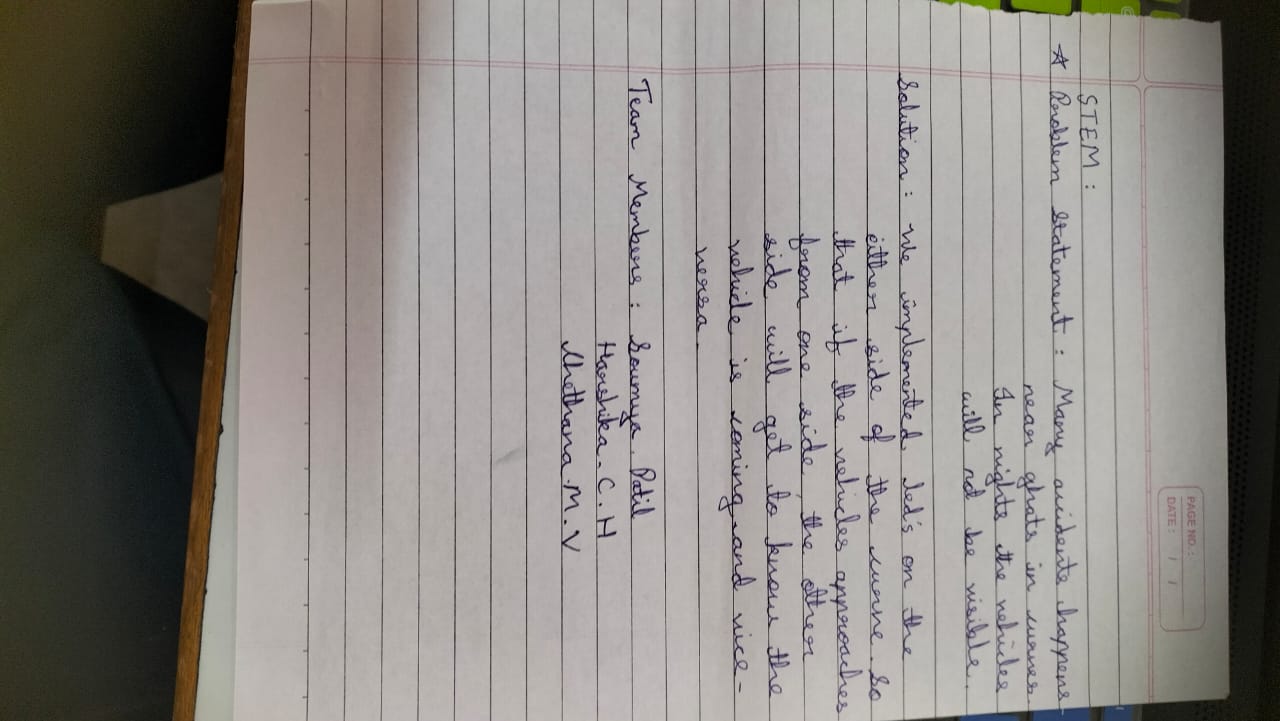 PAGE NO.:
DATE: / /
STEM :
☆ Problem Statement : Many accidents happens
near ghats in curves.
In nights the vehicles
will not be visible.
Solution : We implemented led's on the
either side of the curve. So
that if the vehicles approaches
from one side, the other
side will get to know the
vehicle is coming and vice-
versa.
Team Members : Soumya. Patil
Harshika. C. H
Chethana. M. V